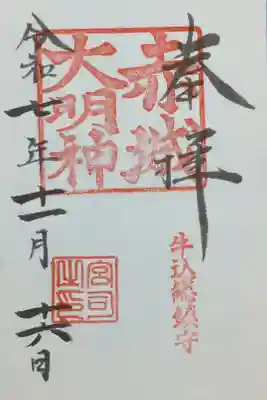 奉拝
赤城
大明神
牛込総鎮守
宮司
之印
令和七年十一月
廿六日